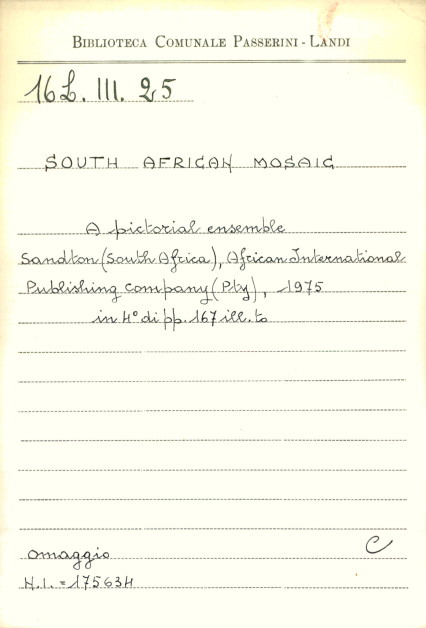 BIBLIOTECA COMUNALE PASSERINI - LANDI
16L. III. 25
SOUTH AFRICAN MOSAIC
A pictorial ensemble
Sandton (South Africa), African International
Publishing company (Pty), 1975
in 4° di pp. 167 ill. to
omaggio
C
N.I. = 175634